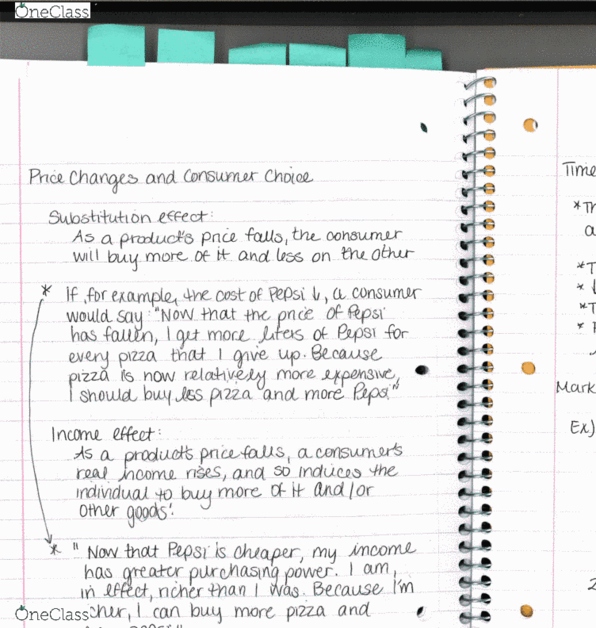 OneClass
Price Changes and Consumer Choice
Substitution effect:
As a product's price falls, the consumer
will buy more of it and less on the other
* If, for example, the cost of Pepsi ↓, a consumer
would say: "Now that the price of Pepsi
has fallen, I get more liters of Pepsi for
every pizza that I give up. Because
pizza is now relatively more expensive,
I should buy less pizza and more Pepsi"
Income effect:
As a product's price falls, a consumer's
real income rises, and so induces the
individual to buy more of it and/or
other goods.
* " Now that Pepsi is cheaper, my income
has greater purchasing power. I am,
in effect, richer than I was. Because I'm
cher, I can buy more pizza and
OneClass
Time
*Th
a
*T
*
*T
*
Mark
Ex)
2